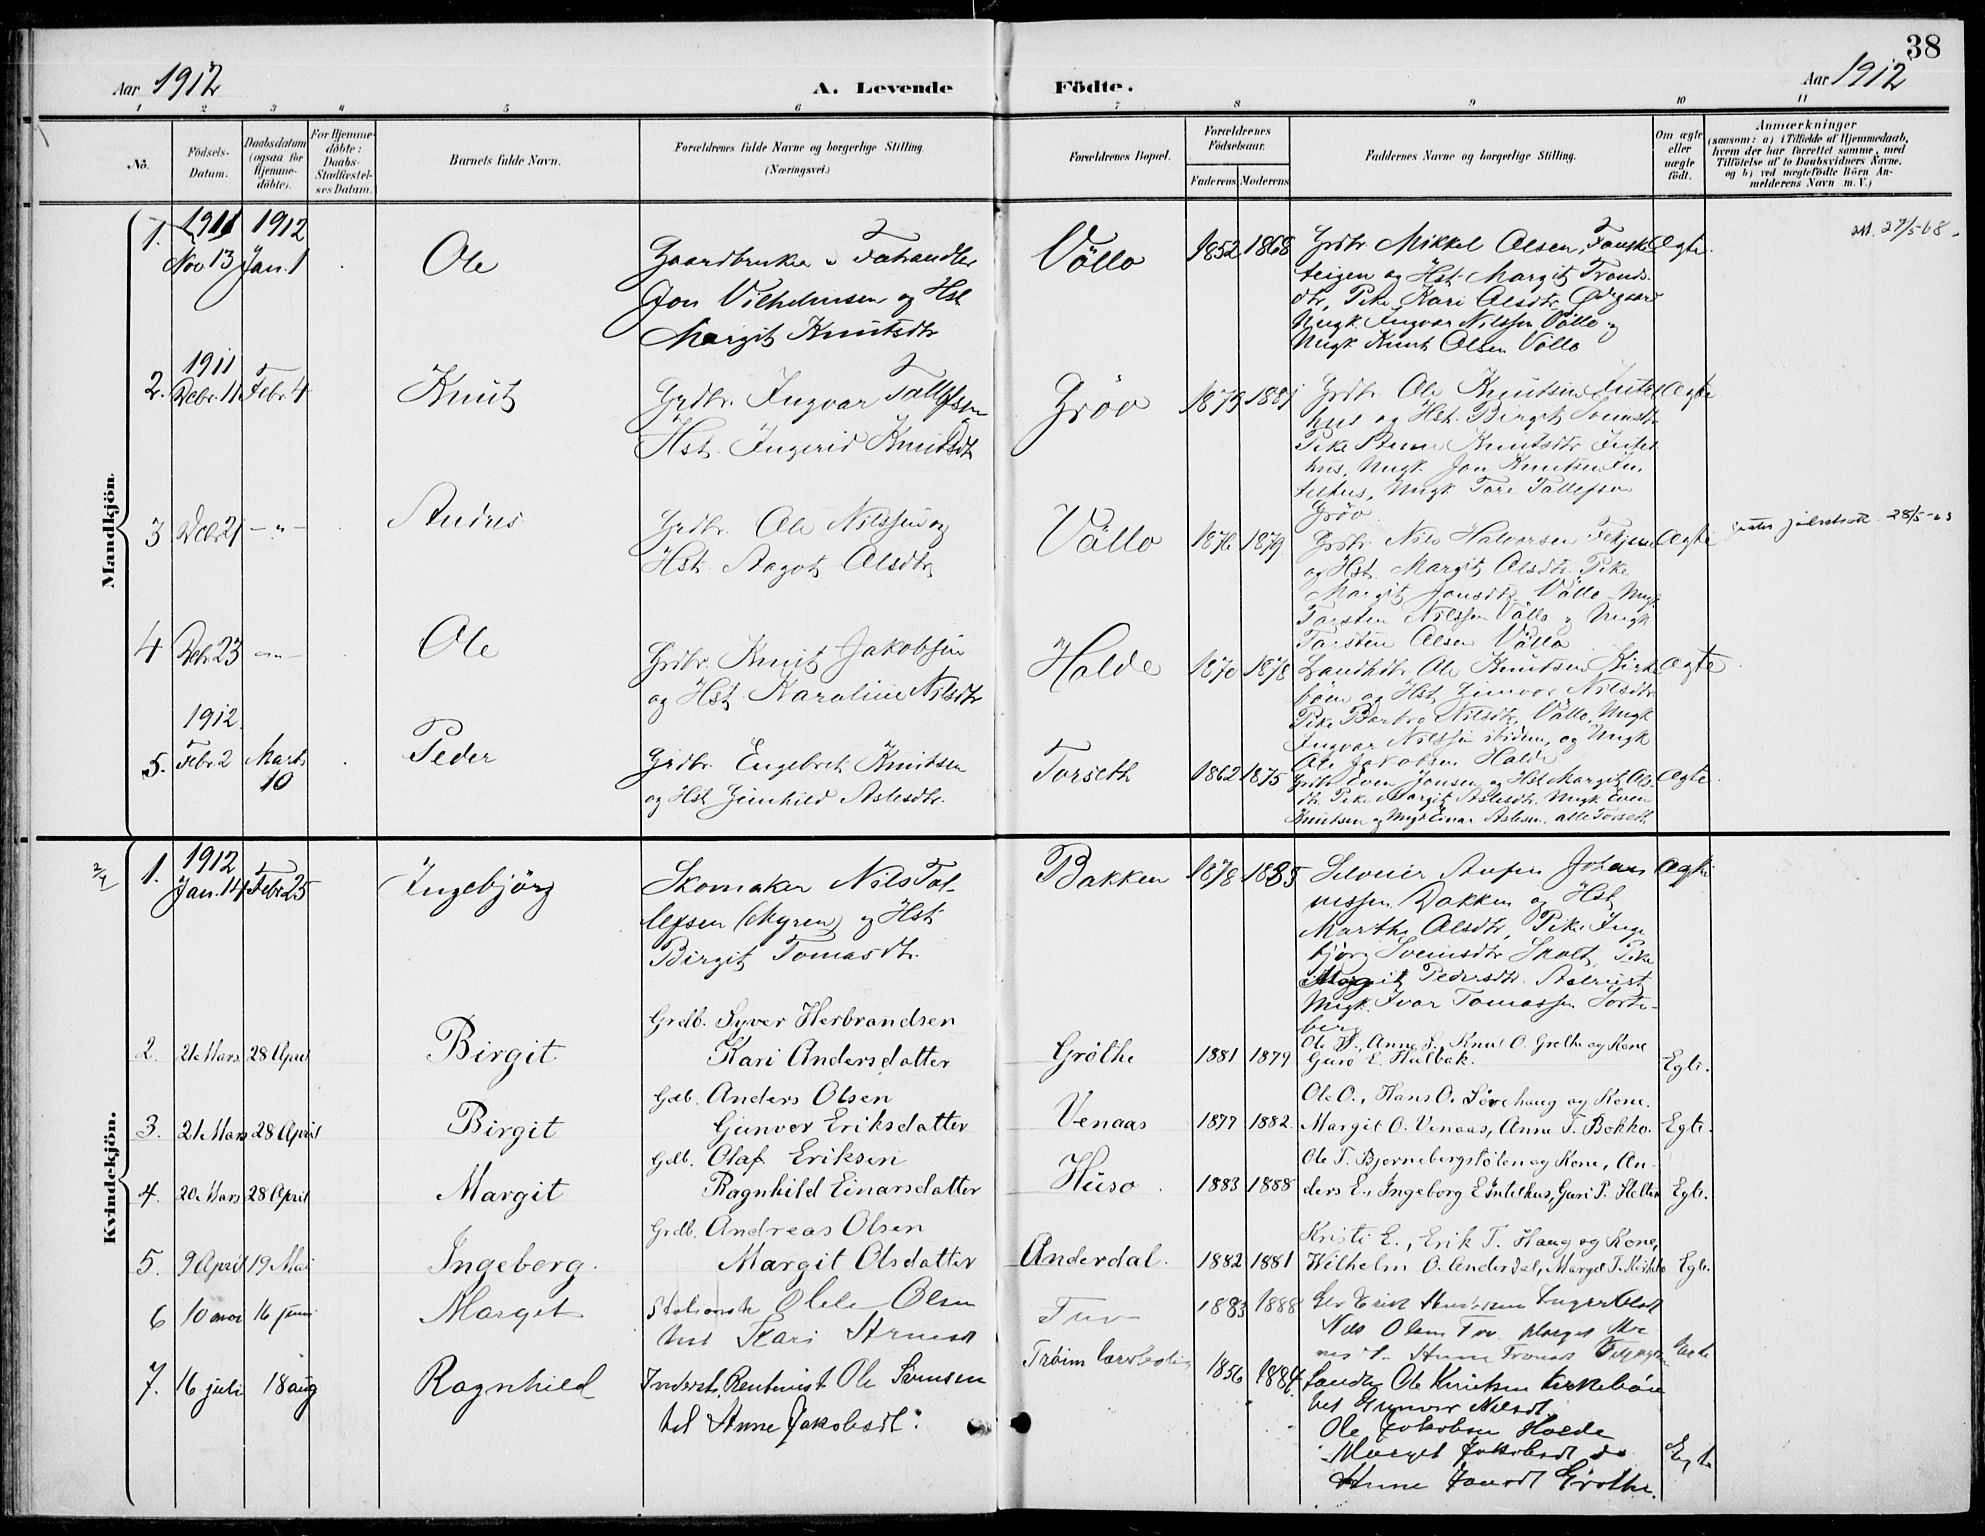 38
Aar 1912
A. Levende
Födte.
Aar 1912
1 2 3 4 5 6 7 8 9 10 11
Nô.
Födsels-Datum.
Daabsdatum (ogsaa for Hjemmedöbte).
For Hjemmedöbte: Daabs-Stadfæstelses Datum.
Barnets fulde Navn.
Forældrenes fulde Navne og borgerlige Stilling (Næringsvei.)
Forældrenes Bopæl.
Forældrenes Födselsaar.
Faderens Moderens
Faddernes Navne og borgerlige Stilling.
Om ægte eller uægte født.
Anmærkninger
(saasom: a) i Tilfælde af Hjemmedaab, hvem der har forrettet samme, med Tilföielse af to Daabsvidners Navne. og b) ved uægtefödte Börn Anmelderens Navn m. V.)
Mandkjön.
1. 1911 Nov 13 1912 Jan. 1
Ole
Gaardbruker & Fæhandler
Jon Vilhelmsen og Hst
Margit Knutsdtr
Völlo
1852 1868
Grdbr. Mikkel Olsen, Fauske
teigen og Hst. Margit Tronds-
dtr, Pike Kari Olsdtr Ödegaard
Ungk. Ingvar Nilssen Völlo og
Ungk Knut Olsen Völlo
Ægte.
27/5-68.
2. 1911 Debr. 11. Febr. 4
Knut
Grdbr. Ingvar Tollefsen
Hst. Ingerid Knutsdtr
Gröv
1879 1881
Grdbr. Ole Knutsen Intel
hus og Hst. Birgit Sveinsdtr
Pike Anne Knutsdtr Intel
hus, Ungk. Jon Knutsen In-
telhus, Ungk Tore Tollefsen
Gröv
Ægte
3 Debr 21 - " -
Andres
Grdbr. Ole Nilssen og
Hst. Aagot Olsdtr
Völlo
1876 1879
Grdbr. Nils Halvorsen Fekjene
og Hst. Margit Olsdtr. Pike
Margit Jonsdtr Völlo Ungk.
Torsten Nilssen Völlo & Ungk
Torsten Olsen Völlo
Ægte
28/5-63
4 Debr 23 - " -
Ole
Grdbr. Knut Jakobsen
og Hst. Karoline Nilsdtr
Halde
1870 1878
Landhdlr. Ole Knutsen Kirke
böen og Hst. Gunvor Nilsdtr
Pike Barbro Nilsdtr, Völlo, Ungk
Ingvar Nilssen ibidem, og Ungk
Ole Jakobsen Halde
Ægte
5. 1912. Febr. 2 Marts 10
Peder
Grdbr. Engebret Knutsen
og Hst Gunhild Aslesdtr.
Torseth
1862 1875
Grdbr. Even Jonsen og Hst Margit Ols-
dtr. Pike Margit Aslesdtr. Ungk Even
Knutsen og Ungk Einar Aslesen, alle Torseth
Ægte.
Kvindekjön.
1. 1912 Jan. 14 Febr 25
Ingebjörg
Skomaker Nils Tol-
lefsen (Myren) og Hst
Birgit Tomasdtr.
Bakken
1878 1885
Johan
nessen Bakken og Hst
Marthe Olsdtr, Pike Inge
björg Sveinsdtr Skolt, Pike
Margit Pedersdtr.
Ungk. Ivar Tomassen Torte-
berg
Ægte
2. 21 Mars 28 April
Birgit
Grdb. Syver Herbrandsen
Kari Andersdatter
Grøthe
1881 1879
Ole S., Anne S., Knut O. Grethe og Kone
Guro E. Hulbak.
Egte.
3. 21 Mars 28 April
Birgit
Gdb. Anders Olsen
Gunvor Eriksdatter
Venaas
1877 1882.
Ole O., Hans O. Lövehaug og Kone.
Margit O. Venaas, Anne T. Bokko.
Egte.
4. 20 Mars 28 April
Margit
Gdb. Olaf Eriksen
Ragnhild Einarsdatter
Huso
1883 1888
Ole T. Bjørnebergstølen og Kone, An-
ders E., Ingeborg E Intelhus, Guri P.
Egte.
5. 9 April 19 Mai
Ingeborg.
Grdb. Andreas Olsen
Margit Olsdatter
Anderdal.
1882 1881
Kristi E., Erik T. Haug og Kone,
Wilhelm O. Anderdal, Margit
Egte.
6 10 mai 16 juni
Marget
Olsen
Kari
Tuv
1883 1888
Erik
Nils Olsen Tuv. Marget
Egte
7. 16 juli 18 aug
Ragnhild
Ole Svensen
Anne Jakobsdt.
Trøim
1856 1884
Ole Knutsen Kirkebøen
Gunvor Nilsdt
Ole Jakobsen Halde
Marget Jakobsdt do
Anne Jonsdt Grøthe.
Egte